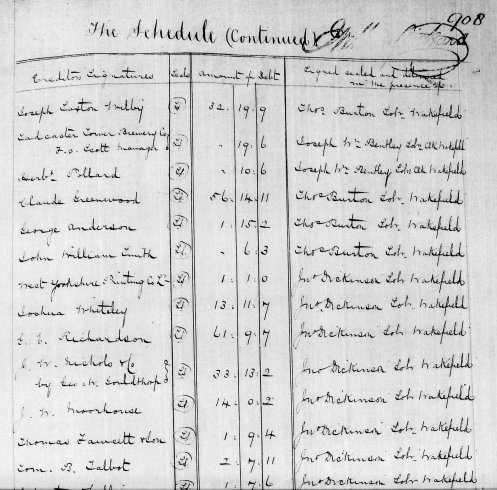 908
The Schedule (Continued)
Creditors Signatures Seals Amount of Debt Signed sealed and delivered
in the presence of.
Joseph Laxton Wilby 32. 19. 9 Thos Burton Solr. Wakefield
Tadcaster Tower Brewery Co
F. O. Scott Manager - 19. 6 Joseph Wm Bentley Solrs Clk Wakefield
Herbt. Pollard - 10. 6 Joseph Wm Bentley Solrs Clk Wakefield
Claude Greenwood 56. 14. 11 Thos Burton Solr. Wakefield
George Anderson 1. 15. 2 Thos Burton Solr. Wakefield
John William Smith - 6. 3 Thos Burton Solr. Wakefield
West Yorkshire Printing Co Ld 1. 1. 0 Jno. Dickinson Solr Wakefield
Joshua Whiteley 13. 11. 7 Jno. Dickinson Solr Wakefield
Richardson 61. 9. 7 Jno Dickinson Solr Wakefield
J. W. Nichols & Co
by Geo W. Gouldthorp 33. 13. 2 Jno Dickinson Solr Wakefield
J. W. Moorhouse 14. 0. 2 Jno Dickinson Solr. Wakefield
Thomas Fawcett & Son 1. 9. 4 Jno Dickinson Solr Wakefield
Tom. B. Talbot 2. 7. 11 Jno Dickinson Solr Wakefield
1. 7. 6 Jno Dickinson Solr Wakefield